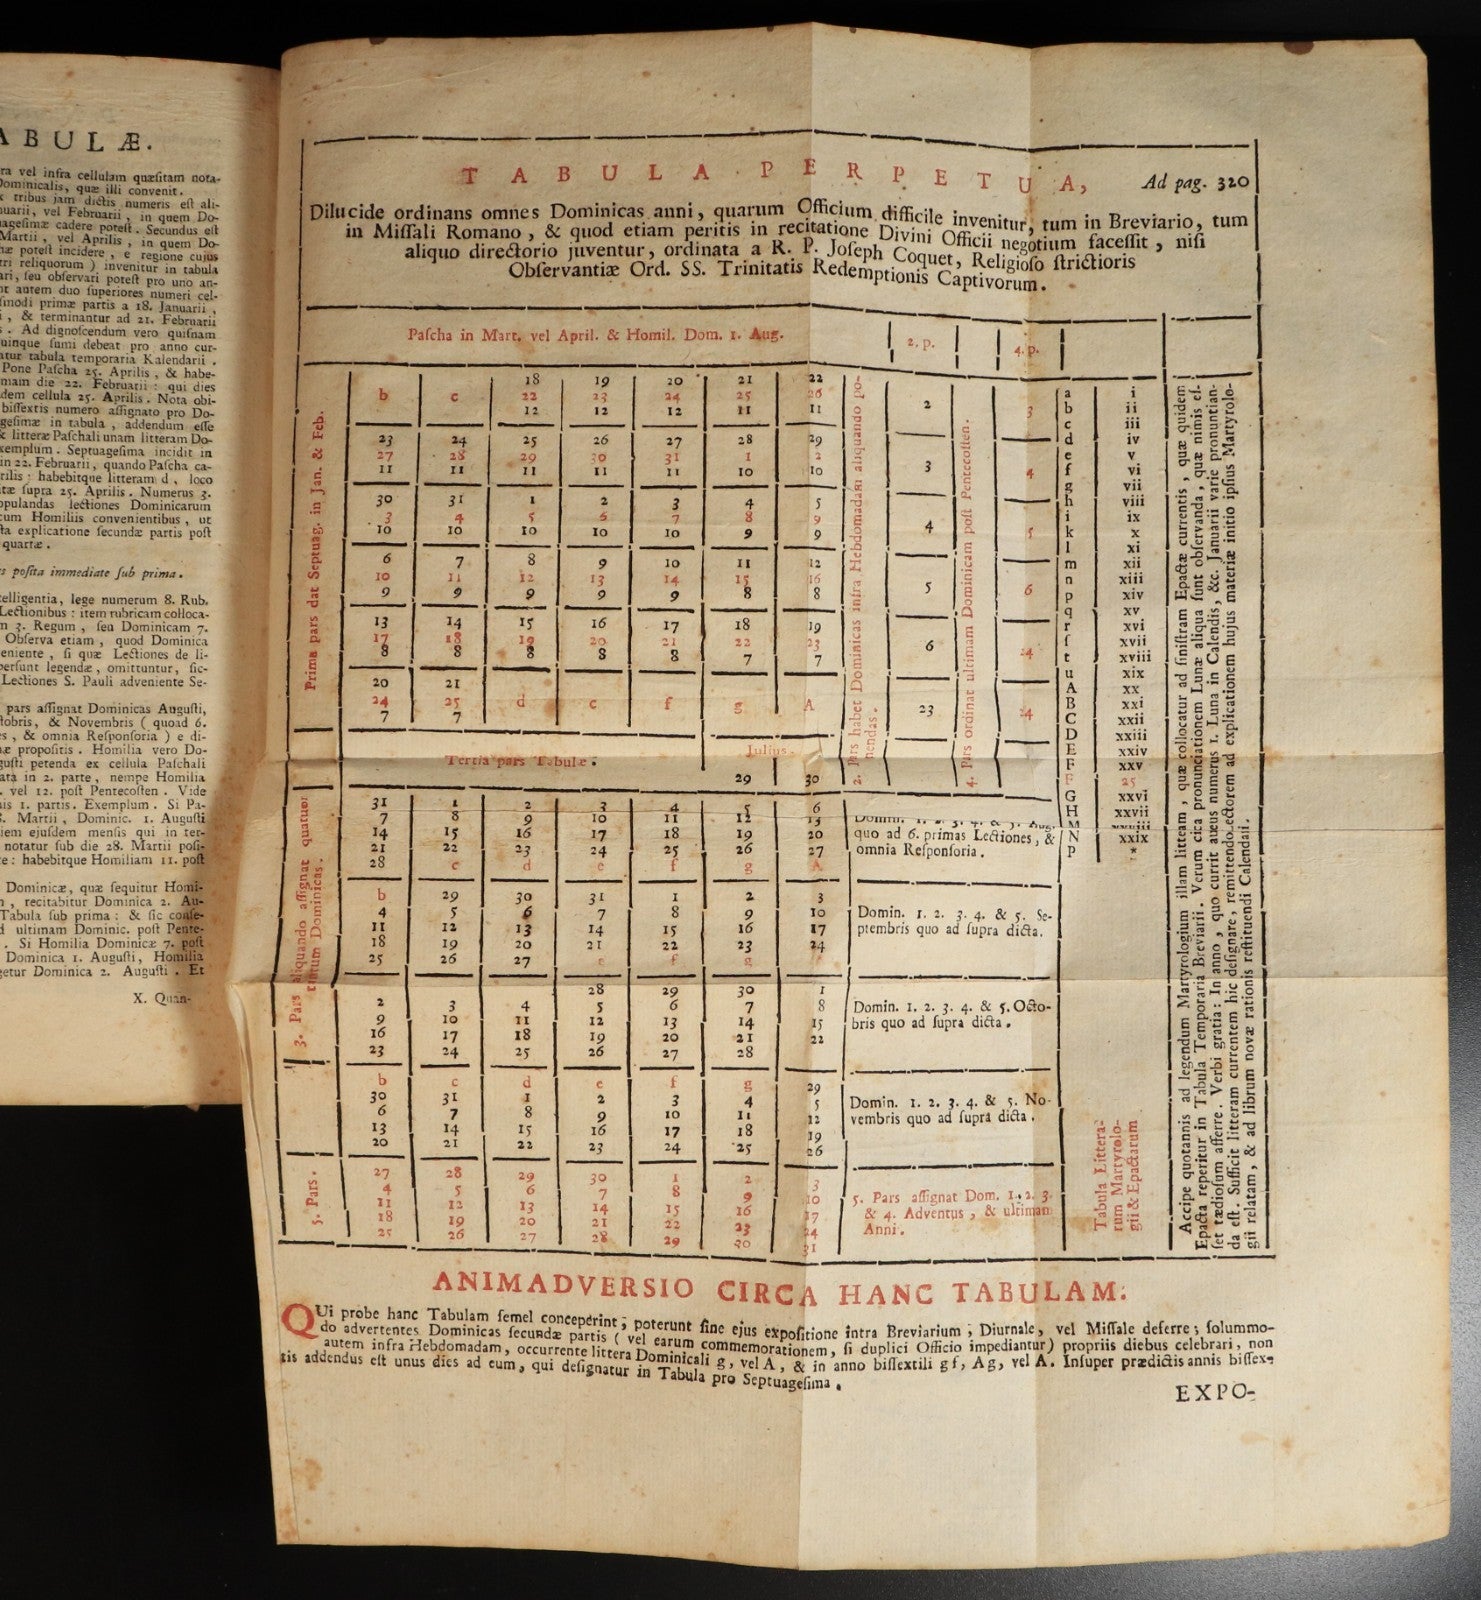 ABULÆ.
ra vel infra cellulam quæſitam nota-
Dominicalis, quæ illi convenit.
tribus jam dictis numeris eſt ali-
nuarii, vel Februarii, in quem Do-
uageſimæ cadere poteſt. Secundus eſt
Martii, vel Aprilis, in quem Do-
poteſt incidere, e regione cujus
tri reliquorum) invenitur in tabula
ari, ſeu obſervari poteſt pro uno an-
autem duo ſuperiores numeri cel-
ſmodi primæ partis a 18. Januarii,
, & terminantur ad 21. Februarii
. Ad dignoſcendum vero quiſnam
uinque ſumi debeat pro anno cur-
atur tabula temporaria Kalendarii.
Pone Paſcha 25. Aprilis, & habe-
mam die 22. Februarii: qui dies
dem cellula 25. Aprilis. Nota obi-
biſſextis numero aſſignato pro Do-
geſimæ in tabula, addendum eſſe
& litteræ Paſchali unam litteram Do-
xemplum. Septuageſima incidit in
in 22. Februarii, quando Paſcha ca-
rilis: habebitque litteram d, loco
tæ ſupra 25. Aprilis. Numerus 3.
opulandas lectiones Dominicarum
cum Homiliis convenientibus, ut
ta explicatione ſecundæ partis poſt
quartæ.
poſita immediate ſub prima.
telligentia, lege numerum 8. Rub.
Lectionibus: item rubricam colloca-
3. Regum, ſeu Dominicam 7.
Obſerva etiam, quod Dominica
eniente, ſi quæ Lectiones de li-
perſunt legendæ, omittuntur, ſic-
Lectiones S. Pauli adveniente Se-
pars aſſignat Dominicas Auguſti,
tobris, & Novembris (quoad 6.
es, & omnia Reſponſoria) e di-
æ propoſitis. Homilia vero Do-
guſti petenda ex cellula Paſchali
ata in 2. parte, nempe Homilia
. vel 12. poſt Pentecoſten. Vide
nis 1. partis. Exemplum. Si Pa-
8. Martii, Dominic. 1. Auguſti
iem ejuſdem menſis qui in ter-
notatur ſub die 28. Martii poſi-
te: habebitque Homiliam 11. poſt
Dominicæ, quæ ſequitur Homi-
, recitabitur Dominica 2. Au-
Tabula ſub prima: & ſic conſe-
d ultimam Dominic. poſt Pente-
. Si Homilia Dominicæ 7. poſt
Dominica 1. Auguſti, Homilia
getur Dominica 2. Auguſti. Et
X. Quan-
TABULA PERPETUA, Ad pag. 320
Dilucide ordinans omnes Dominicas anni, quarum Officium difficile invenitur, tum in Breviario, tum
in Miſſali Romano, & quod etiam peritis in recitatione Divini Officii negotium faceſſit, niſi
aliquo directorio juventur, ordinata a R. P. Joſeph Coquet, Religioſo ſtrictioris
Obſervantiæ Ord. SS. Trinitatis Redemptionis Captivorum.
Paſcha in Mart. vel April. & Homil. Dom. 1. Aug. 2. p. 4. p.
Prima pars dat Septuag. in Jan. & Feb.
18 19 20 21 22
b c 22 23 24 25 26
12 12 12 11 11
23 24 25 26 27 28 29
27 28 29 30 31 1 2
11 11 11 11 11 10 10
30 31 1 2 3 4 5
3 4 5 6 7 8 9
10 10 10 10 10 9 9
6 7 8 9 10 11 12
10 11 12 13 14 15 16
9 9 9 9 9 8 8
13 14 15 16 17 18 19
17 18 19 20 21 22 23
8 8 8 8 8 7 7
20 21
24 25 d e f g A
7 7
2. Pars habet Dominicas infra Hebdomadam aliquando po-
nendas.
2
3
4
5
6
23
4. Pars ordinat ultimam Dominicam poſt Pentecoſten.
3
4
5
6
24
24
a i
b ii
c iii
d iv
e v
f vi
g vii
h viii
i ix
k x
l xi
m xii
n xiii
p xiv
q xv
r xvi
ſ xvii
t xviii
u xix
A xx
B xxi
C xxii
D xxiii
E xxiv
F xxv
F 25
G xxvi
H xxvii
M xxviii
N xxix
P *
Tertia pars Tabulæ. Julius.
29 30
3. Pars aliquando aſſignat quatuor
tantum Dominicas.
31 1 2 3 4 5 6
7 8 9 10 11 12 13
14 15 16 17 18 19 20
21 22 23 24 25 26 27
28 c d e f g A
quo ad 6. primas Lectiones, &
omnia Reſponſoria.
b 29 30 31 1 2 3
4 5 6 7 8 9 10
11 12 13 14 15 16 17
18 19 20 21 22 23 24
25 26 27 e f g
Domin. 1. 2. 3. 4. & 5. Se-
ptembris quo ad ſupra dicta.
28 29 30 1
2 3 4 5 6 7 8
9 10 11 12 13 14 15
16 17 18 19 20 21 22
23 24 25 26 27 28
Domin. 1. 2. 3. 4. & 5. Octo-
bris quo ad ſupra dicta.
b c d e f g 29
30 31 1 2 3 4 5
6 7 8 9 10 11 12
13 14 15 16 17 18 19
20 21 22 23 24 25 26
Domin. 1. 2. 3. 4. & 5. No-
vembris quo ad ſupra dicta.
5. Pars.
27 28 29 30 1 2 3
4 5 6 7 8 9 10
11 12 13 14 15 16 17
18 19 20 21 22 23 24
25 26 27 28 29 30 31
5. Pars aſſignat Dom. 1. 2. 3.
& 4. Adventus, & ultimam
Anni.
Tabula Littera-
rum Martyrolo-
gii & Epactarum
Accipe quotannis ad legendum Martyrologium illam litteram, quæ collocatur ad ſiniſtram Epactæ currentis, quæ quidem
Epacta reperitur in Tabula Temporaria Breviarii. Verum circa pronunciationem Lunæ aliqua ſunt obſervanda, quæ nimis eſ-
ſet tædioſum afferre. Verbi gratia: In anno, quo currit aureus numerus 1. Luna in Calendis, &c. Januarii varie pronuntian-
da eſt. Sufficit litteram currentem hic deſignare, remittendo lectorem ad explicationem hujus materiæ initio ipſius Martyrolo-
gii relatam, & ad librum novæ rationis reſtituendi Calendarii.
ANIMADVERSIO CIRCA HANC TABULAM.
QUi probe hanc Tabulam ſemel conceperint, poterunt ſine ejus expoſitione intra Breviarium, Diurnale, vel Miſſale deferre; ſolummo-
do advertentes Dominicas ſecundæ partis (vel earum commemorationem, ſi duplici Officio impediantur) propriis diebus celebrari, non
autem infra Hebdomadam, occurrente littera Dominicali g, vel A, & in anno biſſextili gf, Ag, vel A. Inſuper prædictis annis biſſex-
tis addendus eſt unus dies ad eum, qui deſignatur in Tabula pro Septuageſima.
EXPO-